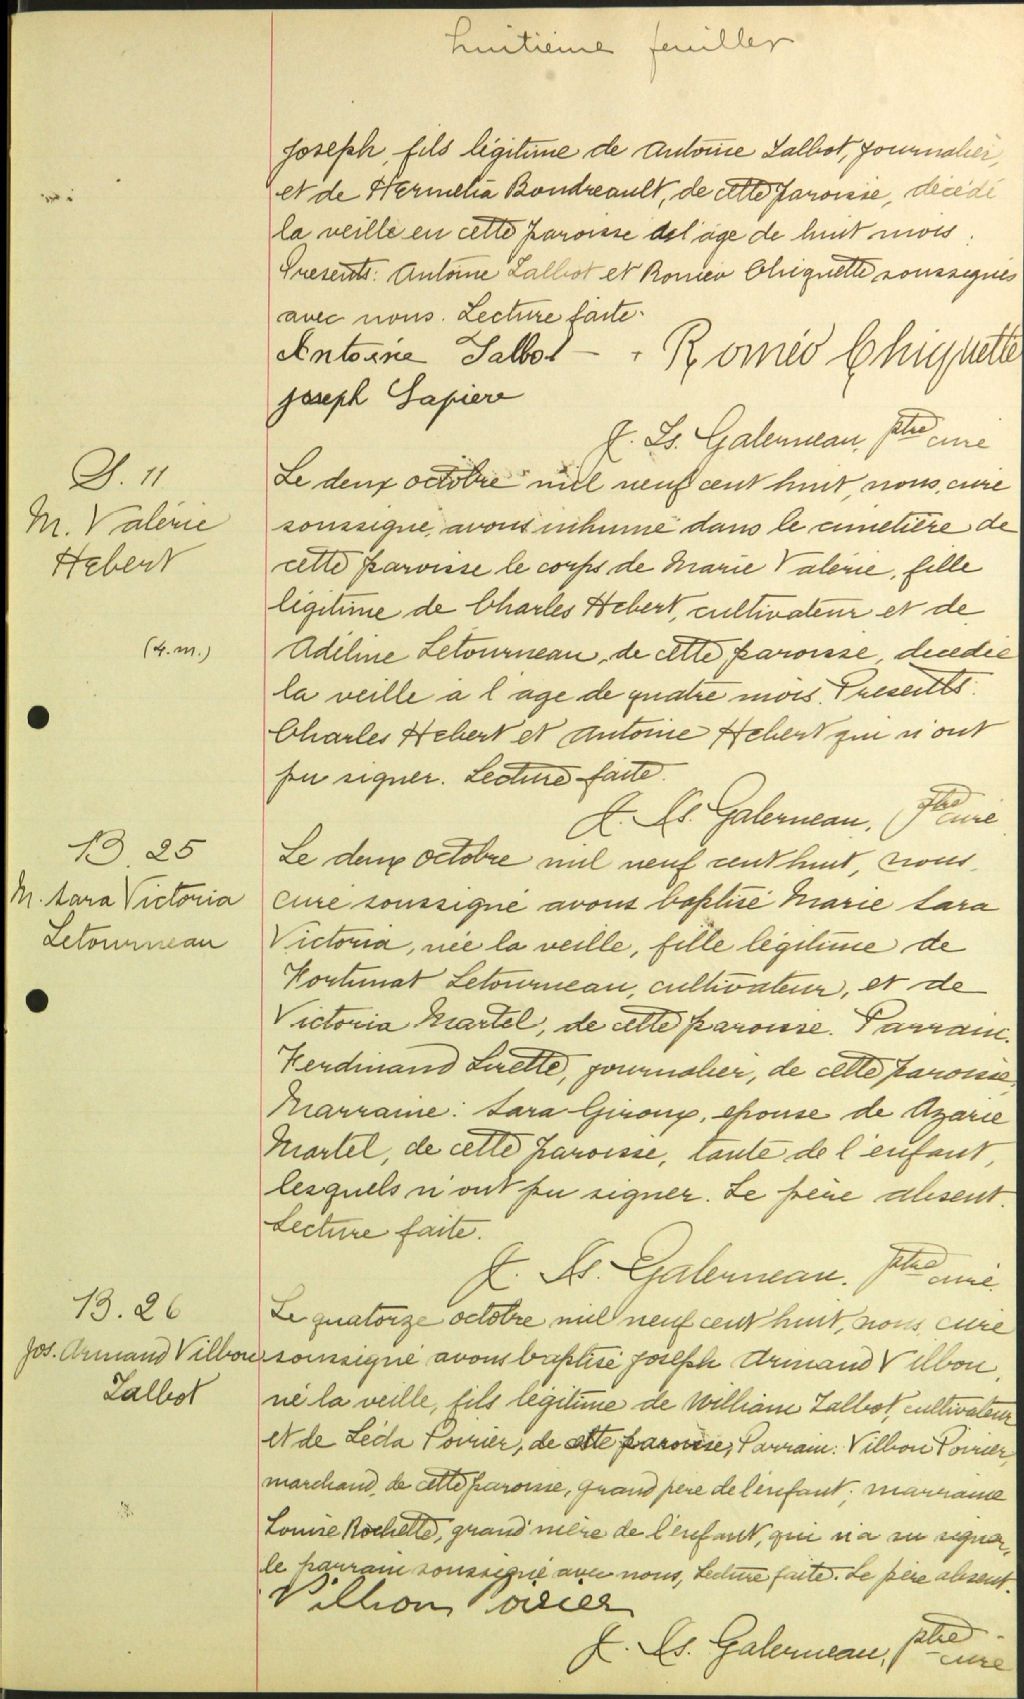 huitième feuillet
Joseph, fils légitime de Antoine Talbot, journalier,
et de Hermelia Boudreault, de cette paroisse, décédé
la veille en cette paroisse à l'âge de huit mois.
Presents: Antoine Talbot et Roméo Chiquette soussignés
avec nous. Lecture faite.
Antoine Talbot - + Roméo Chiquette
Joseph Lapierre
J. Ls. Galerneau, ptre curé
S. 11
M. Valérie
Hebert
(4. m.)
Le deux octobre mil neuf cent huit, nous, curé
soussigné, avons inhumé dans le cimetière de
cette paroisse le corps de Marie Valérie, fille
légitime de Charles Hebert, cultivateur et de
Adéline Letourneau, de cette paroisse, decedée
la veille à l'âge de quatre mois. Presents:
Charles Hebert et Antoine Hebert qui n'ont
pu signer. Lecture faite.
J. Ls. Galerneau, ptre curé
B. 25
M. Sara Victoria
Letourneau
Le deux octobre mil neuf cent huit, nous,
curé soussigné avons baptisé Marie Sara
Victoria, née la veille, fille légitime de
Fortunat Letourneau, cultivateur, et de
Victoria Martel, de cette paroisse. Parrain:
Ferdinand Lirette, journalier, de cette paroisse,
Marraine: Sara Giroux, epouse de Azarie
Martel, de cette paroisse, tante de l'enfant,
lesquels n'ont pu signer. Le père absent.
Lecture faite.
J. Ls. Galerneau. ptre curé.
B. 26
Jos. Armand Vilbon
Talbot
Le quatorze octobre mil neuf cent huit, nous, curé
soussigné avons baptisé Joseph Armand Vilbon,
né la veille, fils légitime de William Talbot, cultivateur
et de Léda Poirier, de cette paroisse, Parrain: Vilbon Poirier,
marchand, de cette paroisse, grand père de l'enfant; marraine
Louise Rochette, grand'mère de l'enfant, qui n'a su signer,
le parrain soussigné avec nous, Lecture faite. Le père absent.
Vilbon Poirier
J. Ls. Galerneau, ptre curé